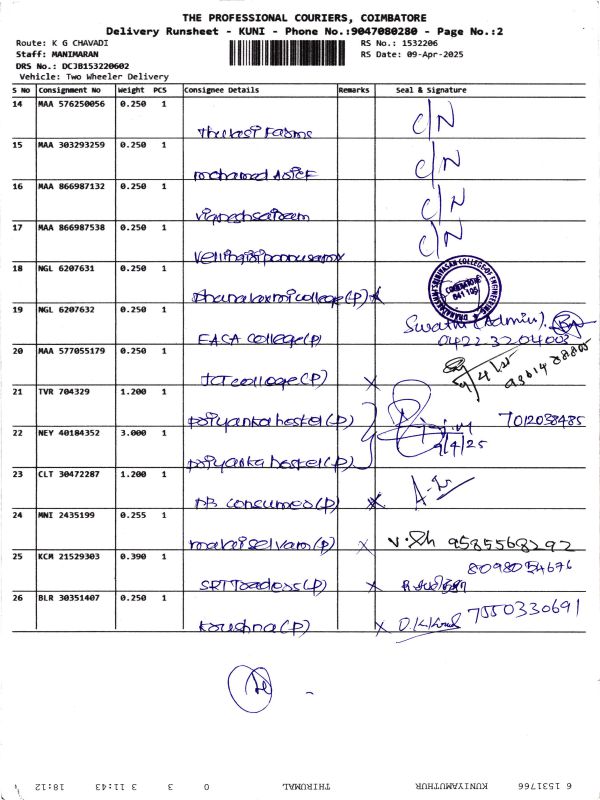 THE PROFESSIONAL COURIERS, COIMBATORE
Delivery Runsheet - KUNI - Phone No.:9047080280 - Page No.:2
Route: K G CHAVADI
Staff: MANIMARAN
DRS No.: DCJB153220602
Vehicle: Two Wheeler Delivery
RS No.: 1532206
RS Date: 09-Apr-2025
S No Consignment No Weight PCS Consignee Details Remarks Seal & Signature
14 MAA 576250056 0.250 1 Thulasi Farms C/N
15 MAA 303293259 0.250 1 mohamed Asief C/N
16 MAA 866987132 0.250 1 C/N
17 MAA 866987538 0.250 1 C/N
18 NGL 6207631 0.250 1 Dhanalaxmi college (P) x
19 NGL 6207632 0.250 1 EACA college (P) Swathi (Admin).
0422 3204003
20 MAA 577055179 0.250 1 JCT college (P) x 9/4/25
21 TVR 704329 1.200 1 priyanka hostel (P) 7012038485
9/4/25
22 NEY 40184352 3.000 1 priyanka hostel (P)
23 CLT 30472287 1.200 1 consumes (P) x
24 MNI 2435199 0.255 1 malaiselvam (P) x 9585568292
25 KCM 21529303 0.390 1 SRT Traders (P) x
8098054676
26 BLR 30351407 0.250 1 Krishna (P) x 7550330691
6 1531766 KUNIYAMUTHUR THIRUMAL 0 3 3 11:43 18:12